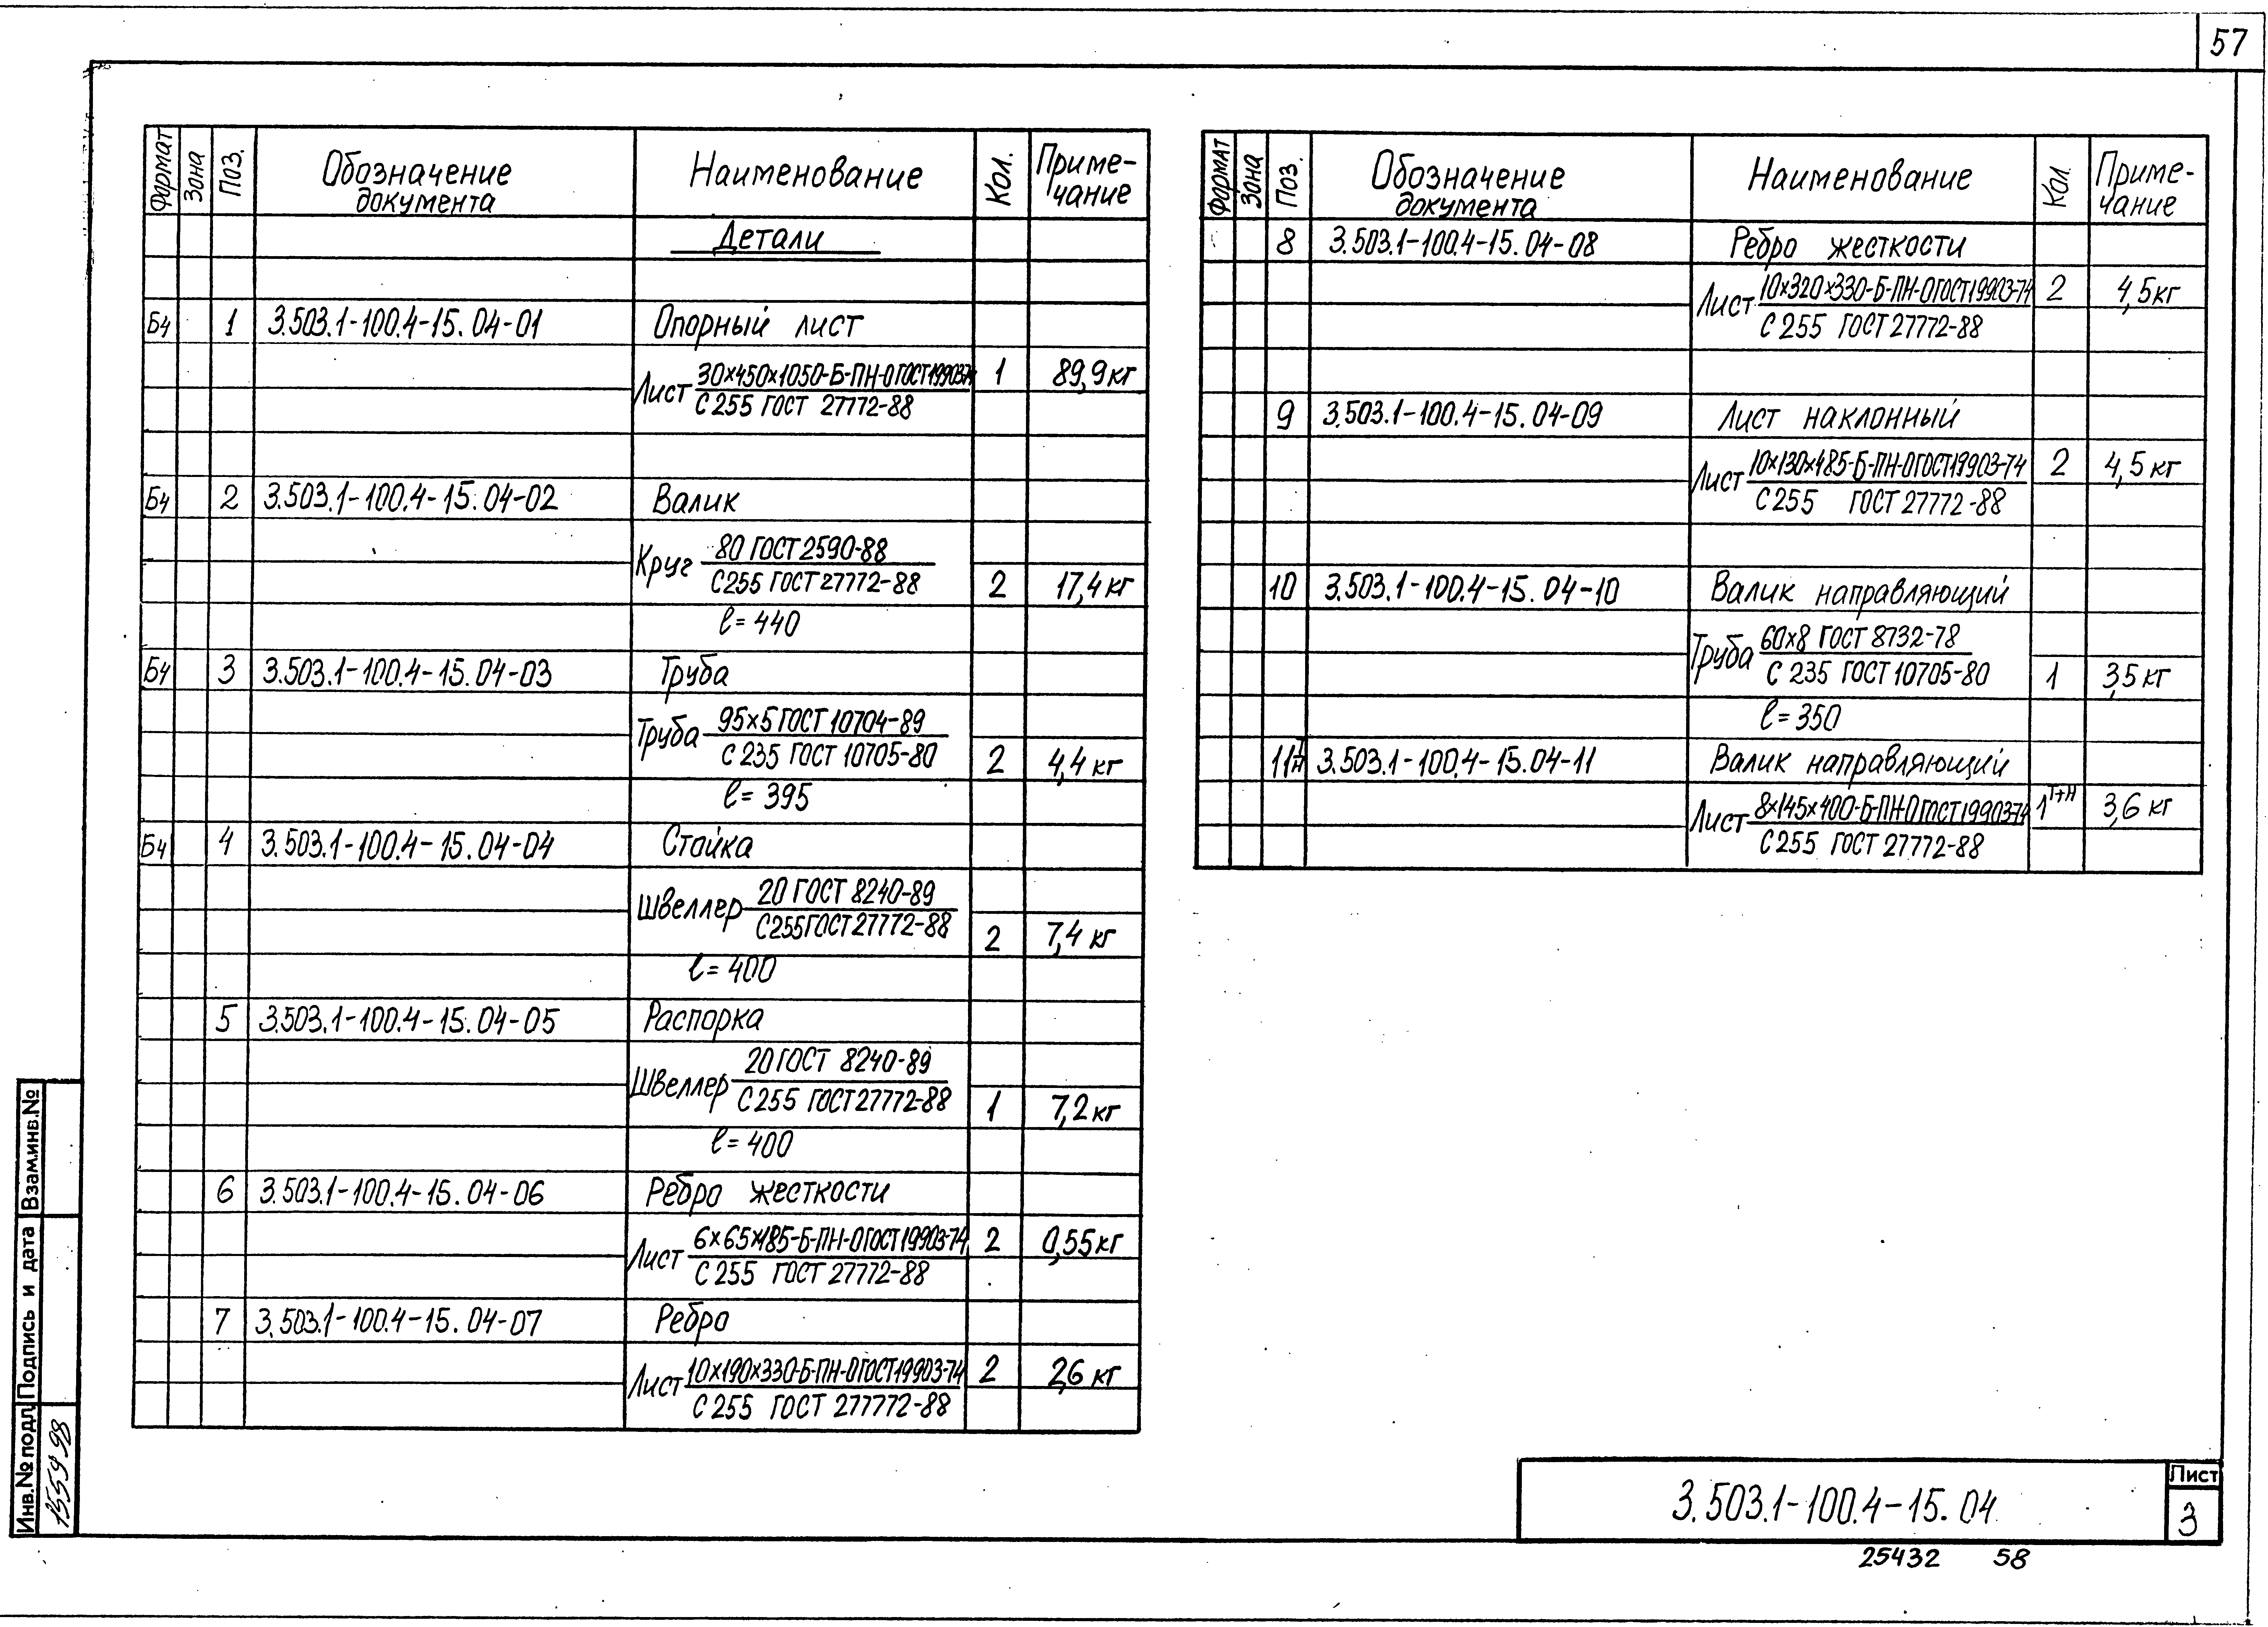 57
Формат Зона Поз. Обозначение документа Наименование Кол. Приме-чание
Детали
Б4 1 3.503.1-100.4-15.04-01 Опорный лист
Лист 30х450х1050-Б-ПН-О ГОСТ 19903-74 1 89,9 кг
С 255 ГОСТ 27772-88
Б4 2 3.503.1-100.4-15.04-02 Валик
Круг 80 ГОСТ 2590-88
С255 ГОСТ 27772-88 2 17,4 кг
ℓ=440
Б4 3 3.503.1-100.4-15.04-03 Труба
Труба 95х5 ГОСТ 10704-89
С 235 ГОСТ 10705-80 2 4,4 кг
ℓ=395
Б4 4 3.503.1-100.4-15.04-04 Стойка
Швеллер 20 ГОСТ 8240-89
С255 ГОСТ 27772-88 2 7,4 кг
ℓ=400
5 3.503.1-100.4-15.04-05 Распорка
Швеллер 20 ГОСТ 8240-89
С 255 ГОСТ 27772-88 1 7,2 кг
ℓ=400
6 3.503.1-100.4-15.04-06 Ребро жесткости
Лист 6х65х185-Б-ПН-О ГОСТ 19903-74 2 0,55 кг
С 255 ГОСТ 27772-88
7 3.503.1-100.4-15.04-07 Ребро
Лист 10х190х330-Б-ПН-О ГОСТ 19903-74 2 2,6 кг
С 255 ГОСТ 277772-88
Формат Зона Поз. Обозначение документа Наименование Кол. Приме-чание
8 3.503.1-100.4-15.04-08 Ребро жесткости
Лист 10х320х330-Б-ПН-О ГОСТ 19903-74 2 4,5 кг
С 255 ГОСТ 27772-88
9 3.503.1-100.4-15.04-09 Лист наклонный
Лист 10х130х485-Б-ПН-О ГОСТ 19903-74 2 4,5 кг
С 255 ГОСТ 27772-88
10 3.503.1-100.4-15.04-10 Валик направляющий
Труба 60х8 ГОСТ 8732-78
С 235 ГОСТ 10705-80 1 3,5 кг
ℓ=350
11 Т Н 3.503.1-100.4-15.04-11 Валик направляющий
Лист 8х145х400-Б-ПН-О ГОСТ 19903-74 1 Т+Н 3,6 кг
С 255 ГОСТ 27772-88
Инв.№ подл. Подпись и дата Взам.инв.№
3.503.1-100.4-15.04
Лист
3
25432 58